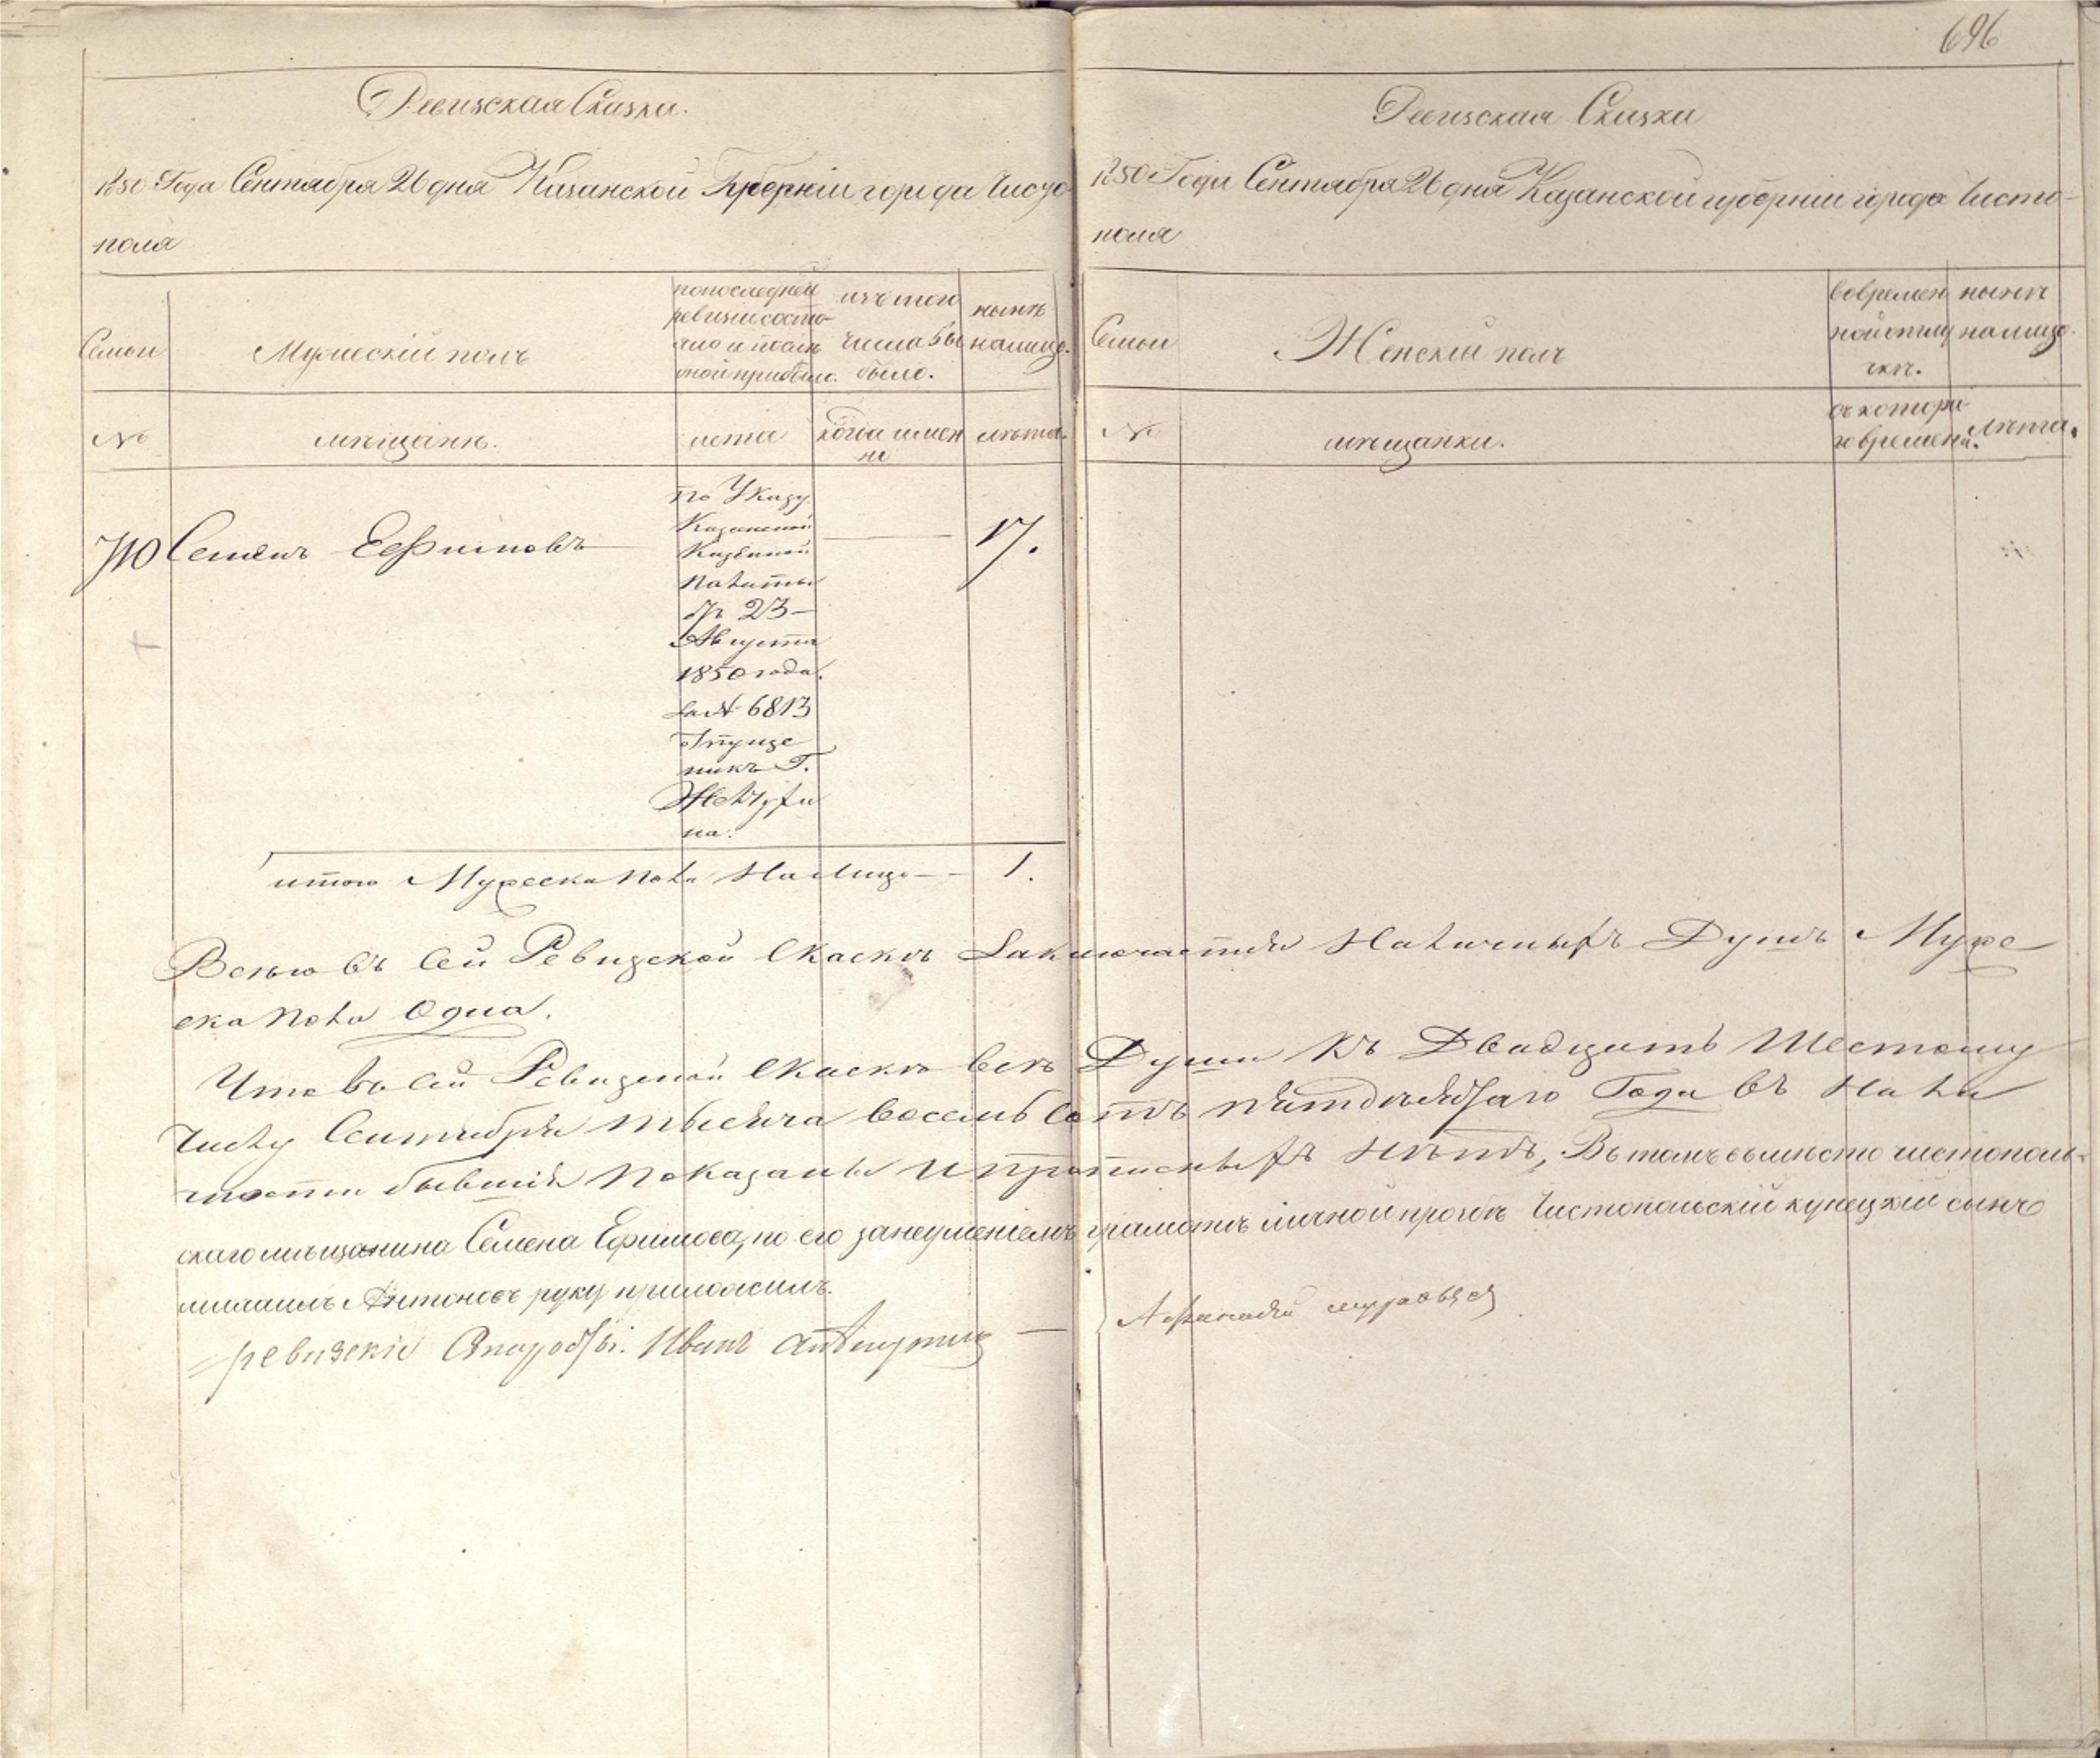 696
Ревизская Сказка.
1850 Года Сентября 26 дня Казанской Губерніи города Чисто-
поля
Семьи
Мужескій полъ
по последней
ревизіи состо-
яло и после
оной прибыло.
изъ того
числа вы
было.
нынѣ
на лицо.
№
мѣщанѣ.
лета
когда имен
но
лѣта.
710 Семенъ Ефимовъ
по Указу
Казанской
Казенной
палаты
отъ 23
Августа
1850 года.
за № 6813
отпуще
никъ Г.
17.
на.
итого Мужеска пола На лицо 1.
Ревизская Сказка
1850 Года Сентября 26 дня Казанской губерніи города Чисто-
поля
Семьи
Женскій полъ
во времен
ной отлу
чкѣ.
нынѣ
на лицо.
№
мѣщанки.
съ котора
го времени.
лѣта.
Всего въ сей Ревизской Скаскѣ Заключается Наличныхъ Душъ Муже
ска пола Одна.
Что въ сей Ревизской Скаскѣ всѣ Души къ Двадцать Шестому
Числу Сентября тысяча восемь сотъ пятдесятаго Года въ Нали
чности бывшія показаны и прописныхъ нѣтъ, Въ томъ вместо чистополь-
скаго мѣщанина Семена Ефимова, по его занеумѣніемъ грамотѣ личной прозбѣ Чистопольскій купецкій сынъ
михаилъ Антоновъ руку приложилъ.
ревизскіе Иванъ
Афанасей